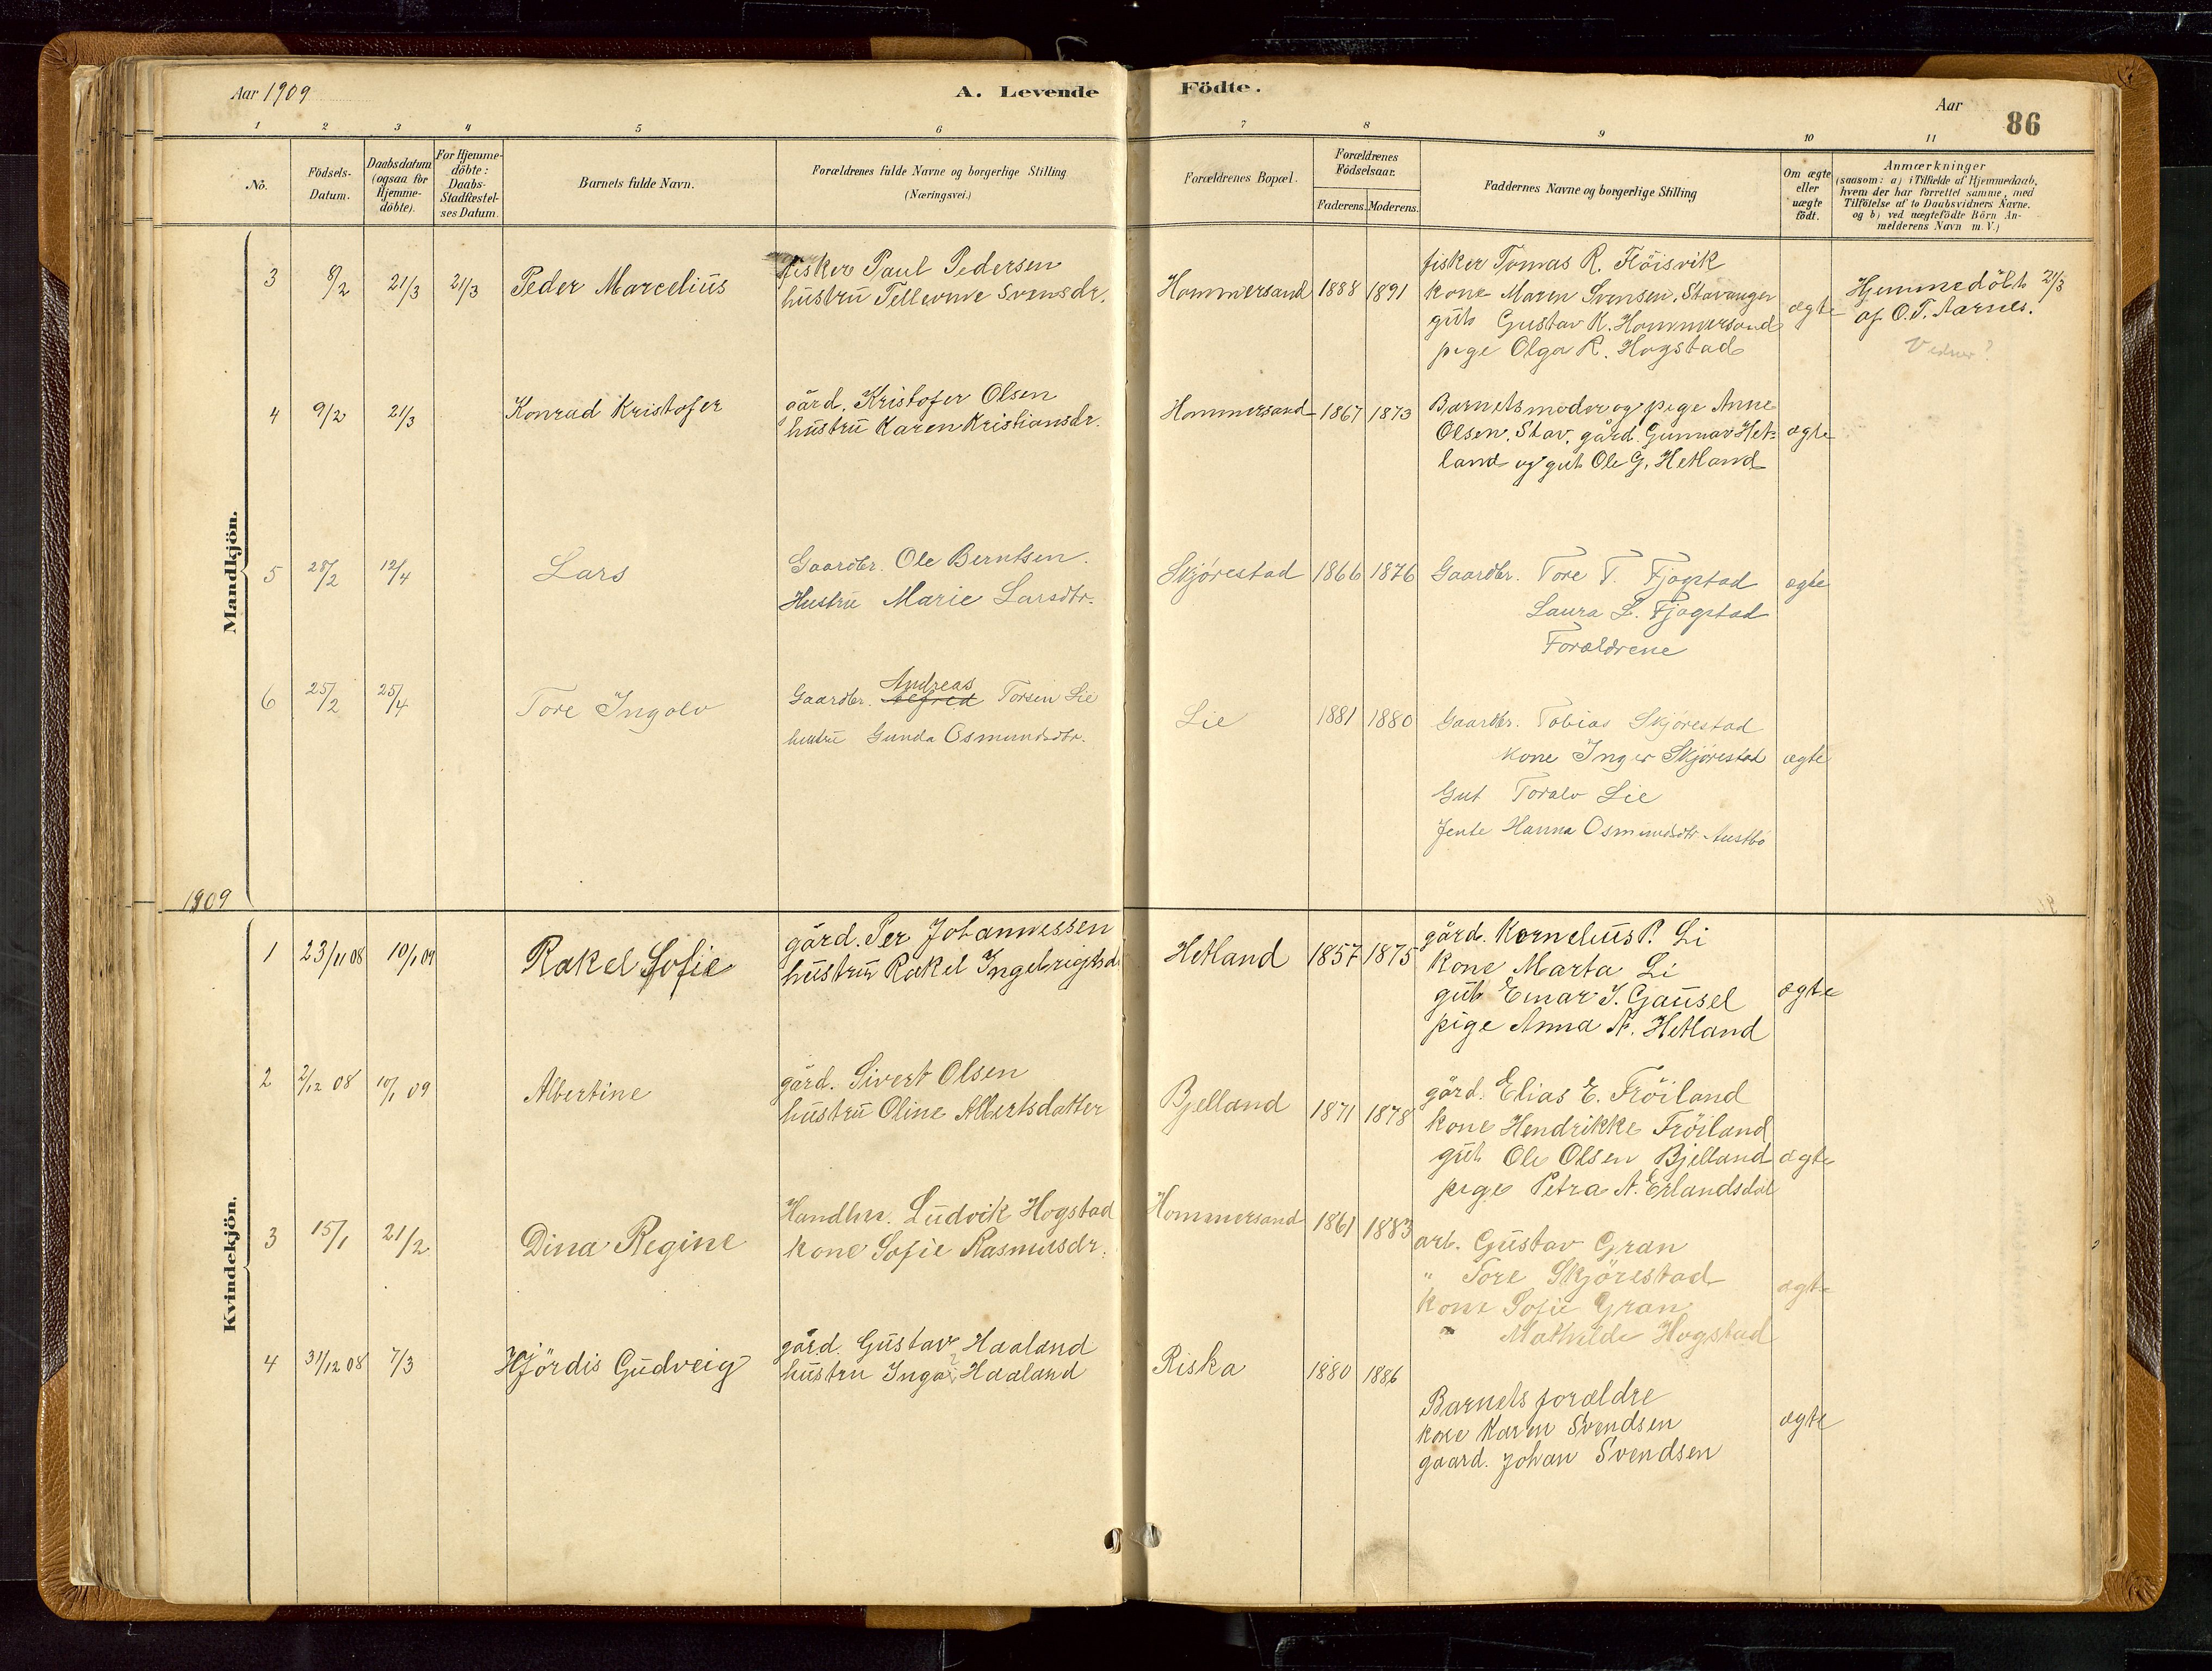 Aar 1909
A. Levende Födte.
Aar
86
1 2 3 4 5 6 7 8 9 10 11
No.
Födsels-
Datum.
Daabsdatum
(ogsaa for
Hjemme-
döbte).
For Hjemme-
döbte:
Daabs-
Stadfæstel-
ses Datum.
Barnets fulde Navn.
Forældrenes fulde Navne og borgerlige Stilling
(Næringsvei.)
Forældrenes Bopæl.
Forældrenes
Födselsaar.
Faderens. Moderens.
Faddernes Navne og borgerlige Stilling
Om ægte
eller
uægte
födt.
Anmærkninger
(saasom: a) i Tilfælde af Hjemmedaab,
hvem der har forrettet samme, med
Tilföielse af to Daabsvidners Navne.
og b) ved uægtefödte Börn An-
melderens Navn m. V.)
Mandkjön.
3 8/2 21/3 21/3 Peder Marcelius
fisker Paul Pedersen
hustru Tellevine Svensdr.
Hommersand 1888 1891
fisker Tomas R. Flöisvik
kone Maren Svensen, Stavanger
gut Gustav K. Hommersand
pige Olga R. Hogstad
ægte
Hjemmedöbt 21/3
af O. T. Aarnes.
Vidner?
4 9/2 21/3 Konrad Kristofer
gård. Kristofer Olsen
hustru Karen Kristiansdr.
Hommersand 1867 1873
Barnets moder og pige Anne
Olsen, Stav, gård. Gunnar Het-
land og gut Ole G. Hetland
ægte
5 28/2 12/4 Lars
Gaardbr. Ole Berntsen.
Hustru Marie Larsdtr.
Skjørestad 1866 1876
Gaardbr. Tore T. Fjogstad
Laura L. Fjogstad
Forældrene
ægte
6 25/2 25/4 Tore Ingolv
Andreas
Gaardbr. Alfred Torsen Lie
hustru Gunda Osmundsdtr.
Lie 1881 1880
Gaardbr. Tobias Skjørestad
Kone Inger Skjørestad
Gut Toralv Lie
Jente Hanna Osmundsdtr. Austbö
ægte
1909
Kvindekjön.
1 23/11 08 10/1 09 Rakel Sofie
gård. Per Johannessen
hustru Rakel Ingebrigtsd
Hetland 1857 1875
gård. Kornelius P. Li
kone Marta Li
gut Einar J. Gausel
pige Anna N. Hetland
ægte
2 2/12 08 10/1 09 Albertine
gård. Sivert Olsen
hustru Oline Albertsdatter
Bjelland 1871 1878
gård. Elias E. Fröiland
kone Hendrikke Fröiland
gut Ole Olsen Bjelland
pige Petra A. Erlandsdal
ægte
3 15/1 21/2 Dina Regine
Handlm. Ludvik Hogstad
kone Sofie Rasmusdr.
Hommersand 1861 1883
arb. Gustav Gran
" Tore Skjörestad
kone Sofie Gran
" Mathilde Hogstad
ægte
4 31/12 08 7/3 Hjördis Gudveig
gård. Gustav Haaland
hustru Inga ? Haaland
Riska 1880 1886
Barnets forældre
kone Karen Svendsen
gaard. Johan Svendsen
ægte